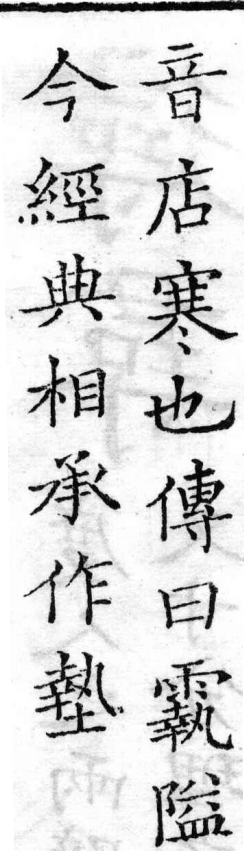 音店寒也傳曰霵隘
今經典相承作墊